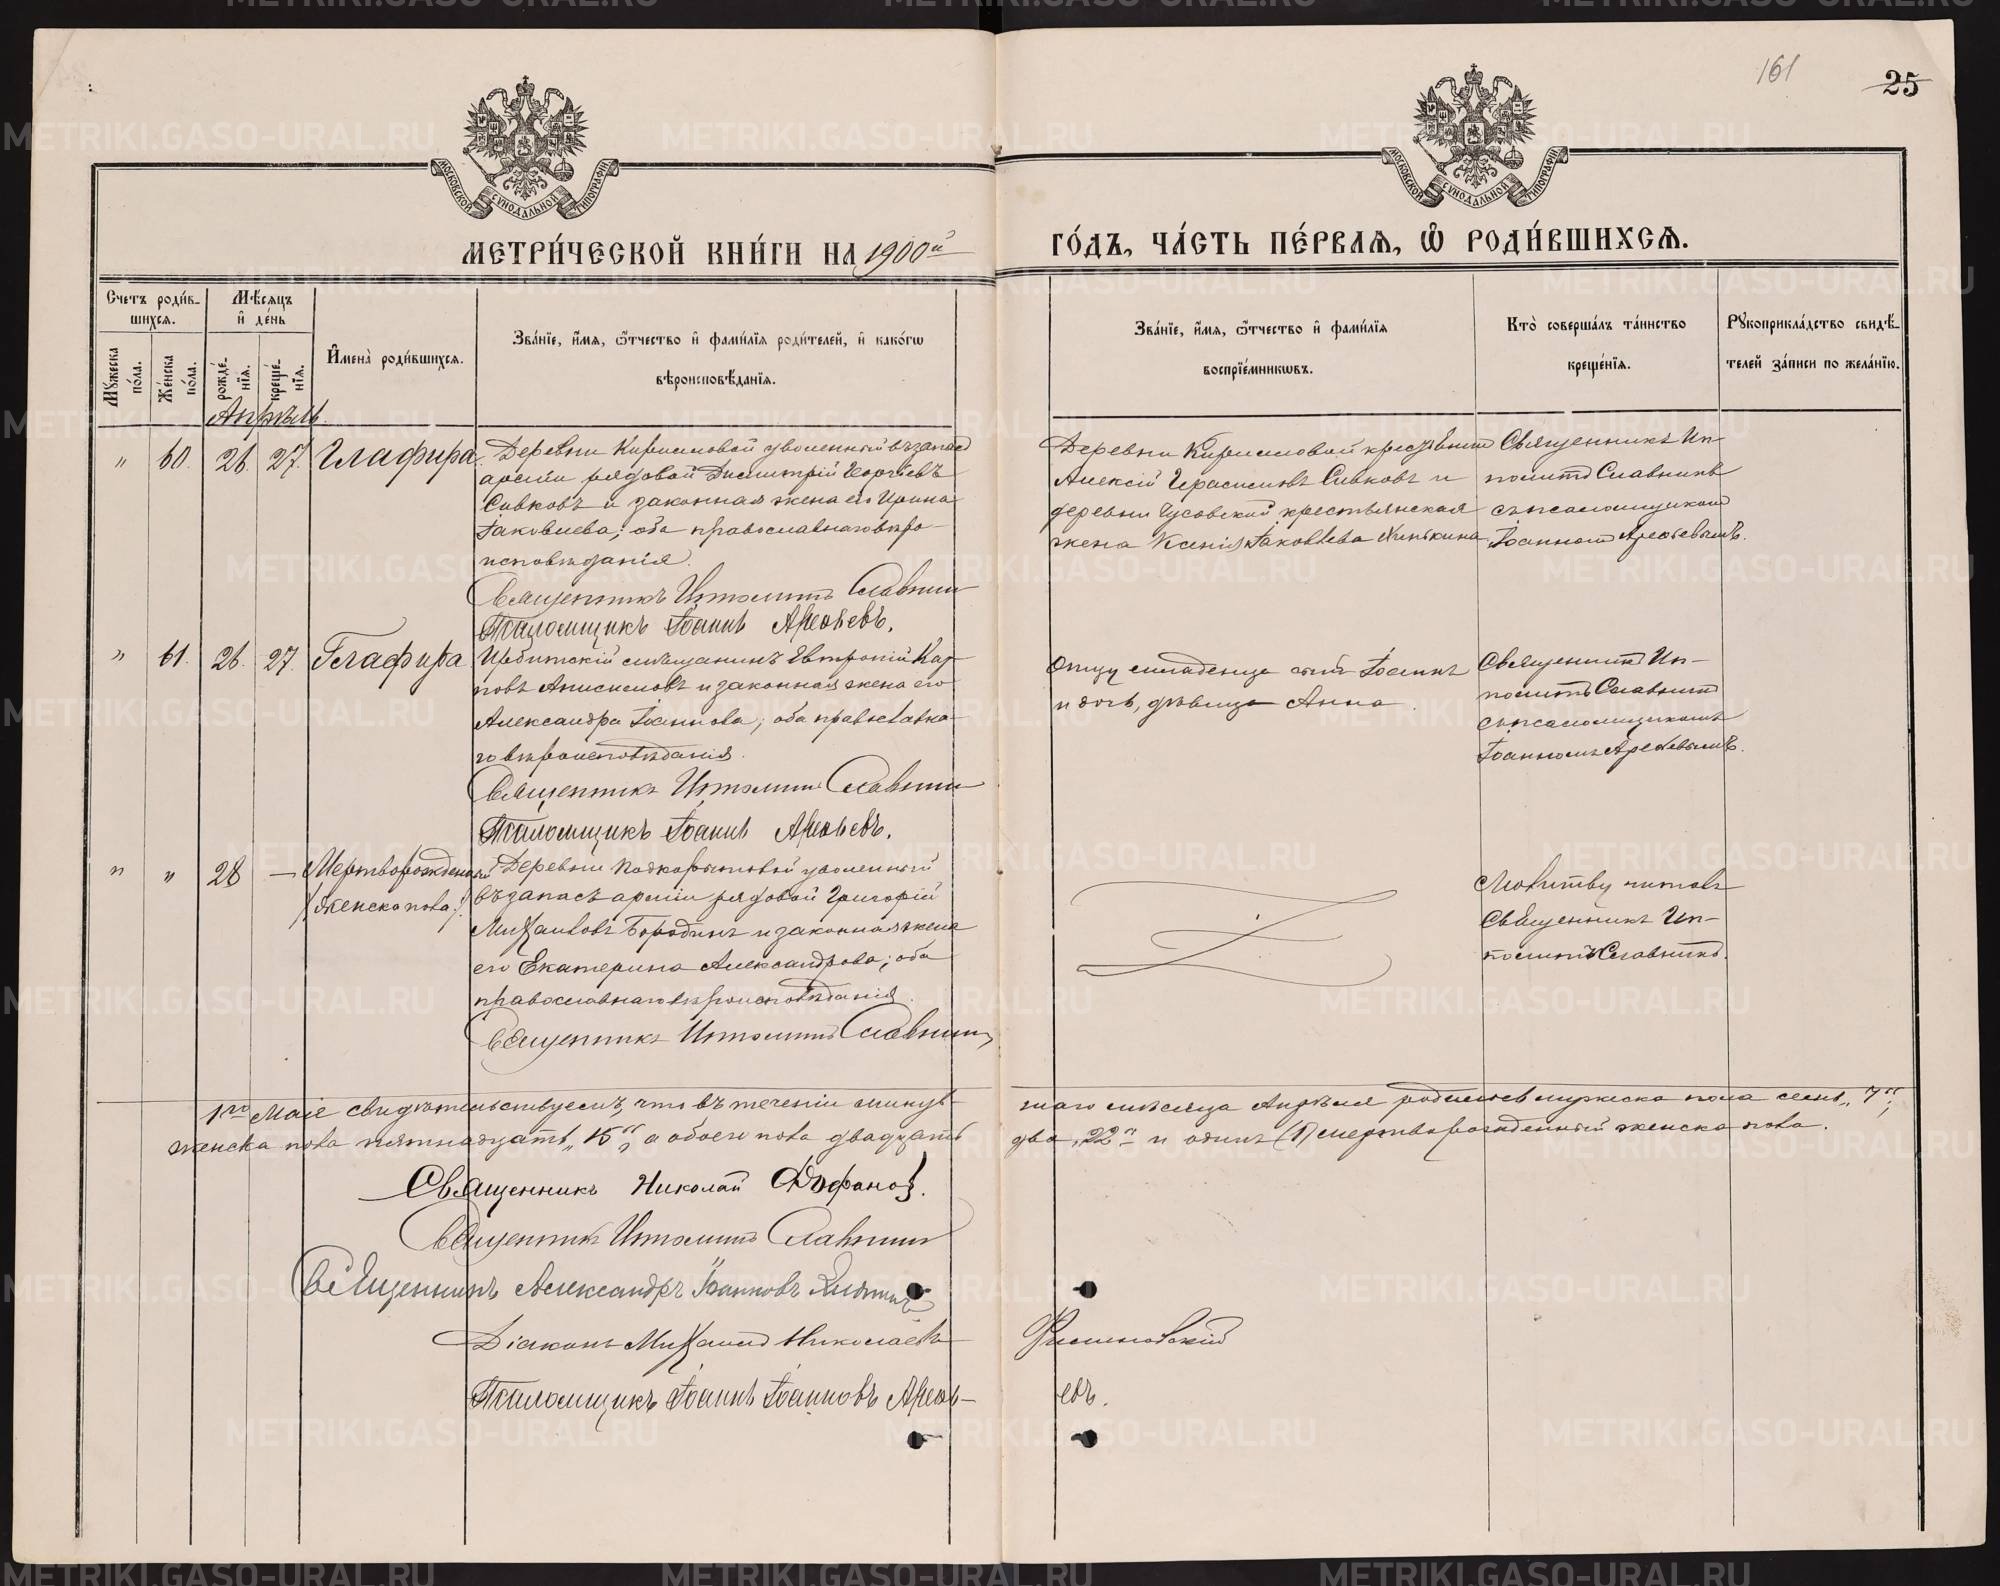 161
25
МОСКОВСКОЙ СѴНОДАЛЬНОЙ ТИПОГРАФІИ
МОСКОВСКОЙ СѴНОДАЛЬНОЙ ТИПОГРАФІИ
МЕТРИ́ЧЕСКОЙ КНИ́ГИ НА 1900й
ГО́ДЪ, ЧА́СТЬ ПЕ́РВАѦ, Ѽ РОДИ́ВШИХСѦ.
Счетъ роди́в-
шихсѧ.
Мѣ́сѧцъ
и҆ де́нь
Мꙋ́жеска
по́ла.
Же́нска
по́ла.
рожде́-
нїѧ.
креще́-
нїѧ.
И҆мена̀ роди́вшихсѧ.
Зва́нїе, и҆́мѧ, ѻ҆́тчество и҆ фами́лїѧ роди́телей, и҆ како́гѡ
вѣроисповѣ́данїѧ.
Зва́нїе, и҆́мѧ, ѻ҆́тчество и҆ фами́лїѧ
воспрїе́мникѡвъ.
Кто̀ совершáлъ та́инство
креще́нїѧ.
Рꙋкоприкла́дство свидѣ́-
телей за́писи по жела́нїю.
Апрѣль.
" 60. 26. 27. Глафира.
Деревни Кирилловой уволенный въ запас
арміи рядовой Димитрій Георгіевъ
Сивковъ и законная жена его Ирина
Іаковлева; оба православнаго вѣро-
исповѣданія.
Священникъ Ипполитъ Славнин
Псаломщикъ Іоаннъ Арефьевъ.
Деревни Кирилловой крестьянин
Алексій Герасимовъ Сивковъ и
деревни Гусовской крестьянская
жена Ксенія Іаковлева
Священникъ Ип-
политъ Славнинъ
съ псаломщикомъ
Іоанномъ Арефьевымъ.
" 61. 26. 27. Глафира
Ирбитскій мѣщанинъ Евтропій Кар-
повъ Анисимовъ и законная жена его
Александра Іоаннова; оба православна-
го вѣроисповѣданія.
Священникъ Ипполитъ Славнин
Псаломщикъ Іоаннъ Арефьевъ.
Отцу младенца сынъ Іоаннъ
и дочь, дѣвица Анна.
Священникъ Ип-
политъ Славнинъ
съ псаломщикомъ
Іоанномъ Арефьевымъ.
" " 28 — Мертворожденный
(женска пола).
Деревни Подкорытовой уволенный
въ запасъ арміи рядовой Григорій
Михаиловъ Бородинъ и законная жена
его Екатерина Александрова; оба
православнаго вѣроисповѣданія.
Священникъ Ипполитъ Славнинъ
Молитву читалъ
Священникъ Ип-
политъ Славнинъ.
1го Маія свидѣтельствуемъ, что въ теченіи минув-
шаго мѣсяца Апрѣля родилось мужеска пола семь „7";
женска пола пятнадцать „15", а обоего пола двадцать
два „22" и одинъ (1) мертворожденный женска пола.
Священникъ Николай
Священникъ Ипполитъ Славнин
Священникъ Александръ Іоанновъ
Діаконъ Михаилъ Николаевъ
Псаломщикъ Іоаннъ Іоанновъ Арефь-
евъ.